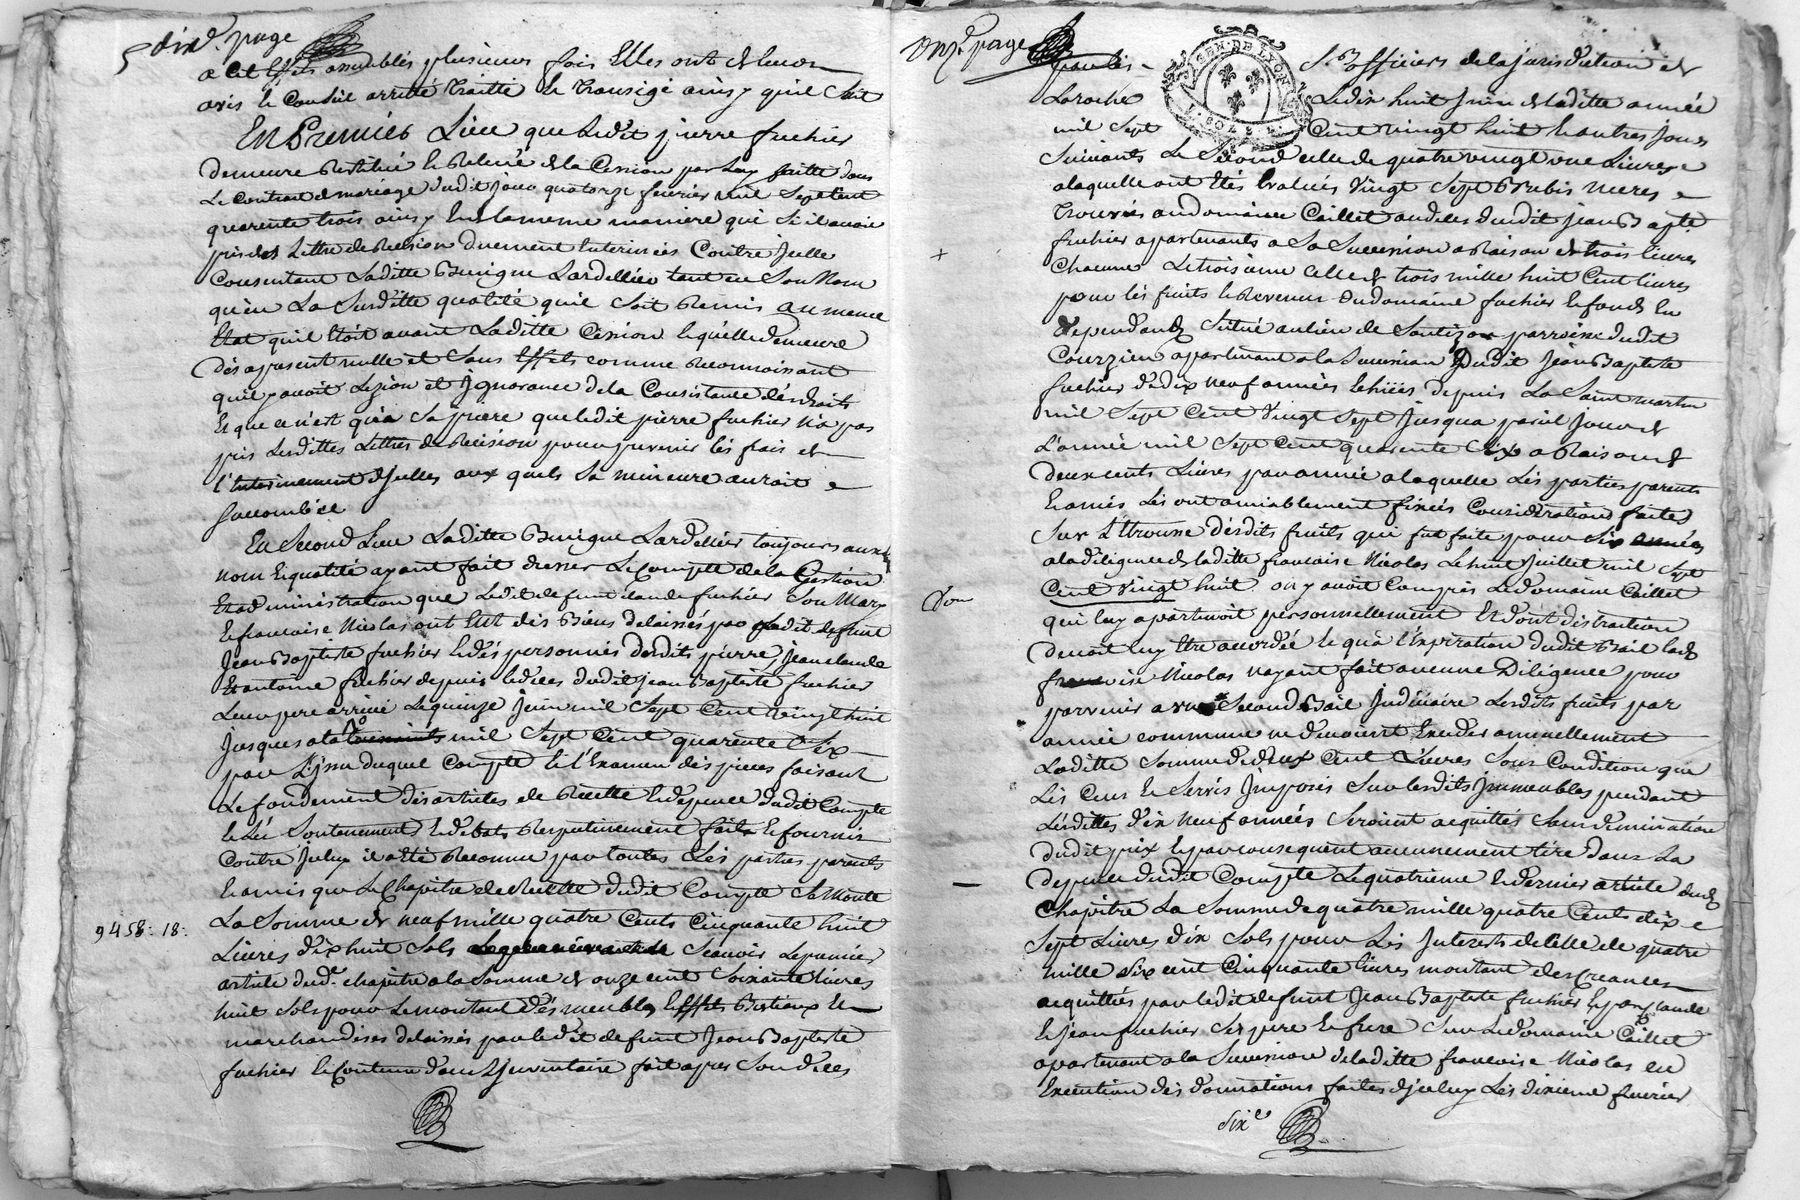 dixe. page
a cet Effets assemblés plusieurs fois Elles ont de leur
avis le Conseil arrété traitté et transigé ainsy quil suit
En Premier Lieu que Ledit pierre fuchier
demeure Restitué et Relevé de la Cession par luy faitte dans
Le Contrat de mariage dudit jour quatorze fevrier mil Sept Cent
quarente trois ainsy En la meme maniere que Si il avoit
pris des Lettre de Recision duement Enterinées Contre Jcelle
Consentant Laditte Benigne Lardellier tant en Son Nom
qu'en La Susditte qualité quil Soit Remis au meme
Etat quil Etoit avant Laditte Cession Laquelle demeure
dés apresent nulle et Sans Effets comme Reconnoissant
quil y avoit Lezion et Jgnorance de la Consistance des droits
Et que ce n'est qu'a Sa priere que ledit pierre fuchier N'a pas
pris Lesdittes Lettres de Recision pour prevenir les frais et
l'Enterinement d'Jcelles aux quels Sa mineure auroit
Succombée
En Second Lieu Laditte Benigne Lardellier toujours aux
nom Et qualité ayant fait dresser Le Compte de la Gestion
Et administration que Ledit defunt claude fuchier Son Mary
Et francoise Nicolas ont Eut des Biens delaissés par Ledit defunt
Jean Baptiste fuchier Et des personnes desdits pierre, Jean claude
Et antoine fuchier depuis le deces dudit Jean Baptiste fuchier
Leur pere arrivé Le quinze Juin mil Sept Cent vingt huit
Jusques a la Toussaints mil Sept Cent quarente Six
par L'Jssu duquel Compte Et l'Examen des pieces faisant
Le fondement des articles de Recette Et depence dudit Compte
Et Les Soutenements Et debats Respectivement faits Et fournis
Contre Jceluy il a Eté Reconnu par toutes Les parties parents
Et amis que Le Chapitre de Recette dudit Compte Se Monte
La Somme de neuf mille quatre Cents Cinquante huit
9458: 18:
Livres dix huit Sols Scavoir Le premier
article dud. chapitre a la Somme de onze cent Soixante Livres
huit Sols pour Le montant des meubles Effets Bestiaux Et
marchandises delaissés par ledit defunt Jean Baptiste
fuchier Et Contenu dans L'Jnventaire fait apres Son deces
onze. page
par les Srs officiers de la jurisdiction de
GEN. DE LYON
Laroche Le dix huit Juin de laditte année
mil Sept Cent vingt huit Et autres jours
Suivants Le Second celle de quatre vingt une Livres
a laquelle ont Etés Evalués vingt Sept Brebis meres
trouvées au domaine Caillet au deces dudit Jean Bapte
fuchier apartenants a Sa Succession a Raison de trois livres
Chacune Le troisieme celle de trois mille huit Cent livres
pour les fruits Et Revenus du domaine fuchier Et fonds En
dependants Situé au lieu de parroisse dudit
Courzieu apartenant a la Succession Dudit Jean Baptiste
fuchier dedix neuf années Echües depuis La Saint martin
mil Sept Cent Vingt Sept Jusqua pareil Jour de
L'année mil Sept Cent quarente Six a Raison de
deux cents Livres par année a laquelle Les parties parents
Et amis Les ont amiablement fixées Consideration faites
Sur L'Etrousse desdits fruits qui fut faite pour Six années
a la diligence de laditte francoise Nicolas Le huit Juillet mil Sept
Cent vingt huit ou y avoit Compris Le domaine Caillet
Don
qui luy apartenoit personnellement Et dont distraction
devoit luy Etre accordée Et qu'a l'Expiration dudit Bail lade
francoise Nicolas n'ayant fait aucune Diligence pour
parvenir a un Second Bail Judiciaire Lesdits fruits par
année commune ne devoient Exceder annuellement
Laditte Somme de deux Cent Livres Sous Condition que
Les Cens Et Servis Jmposés Sur lesdits Jmmeubles pendant
Lesdittes dix neuf années Seroient acquittés Sans diminution
dudit prix Et par consequent aucunement tiré Dans La
depence dudit Compte Le quatrieme Et dernier article dud.
Chapitre La Somme de quatre mille quatre Cents dix
Sept Livres dix Sols pour Les Jnterests de Celle de quatre
mille Six cent Cinquante livres montant des Creances
acquittées par ledit defunt Jean Baptiste fuchier Et par claude
Et Jean fuchier Ses pere Et frere Sur Le domaine Caillet
apartenant a la Succession de laditte francoise Nicolas en
Execution des donnations faites d'Jceluy Les dixieme fevrier
Sixe